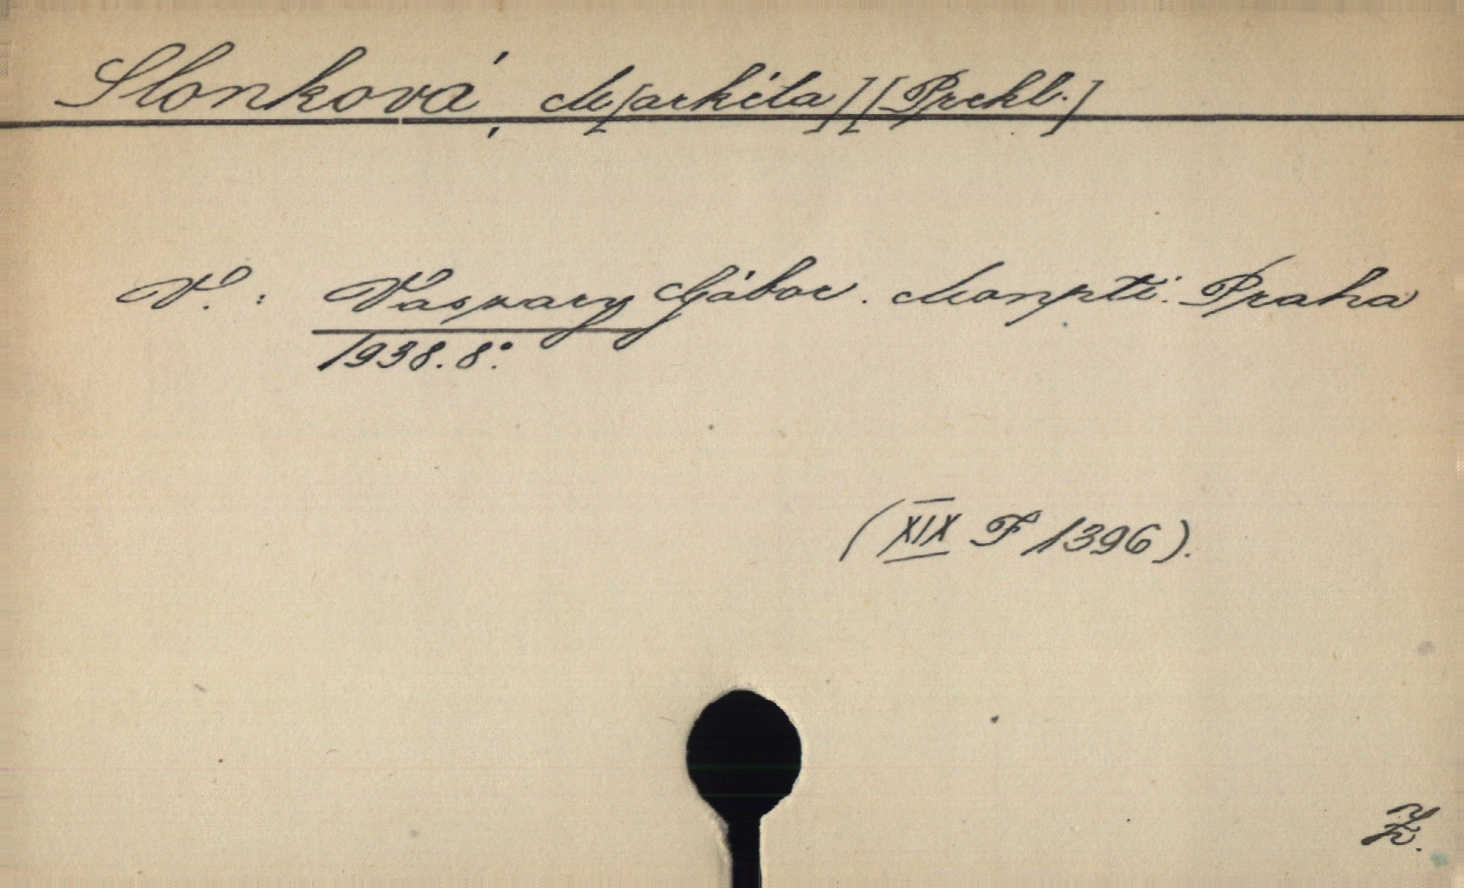 Slonková, M[arkéta] [Prekl.]
V.: Vaszary Gábor. Monpti. Praha
1938. 8°.
(XIX F 1396).
Z.